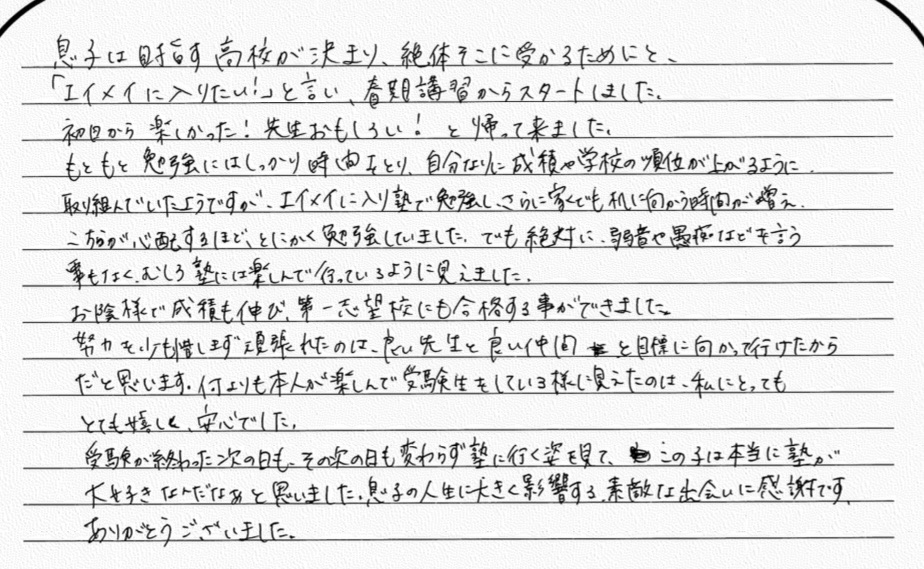 息子は目指す高校が決まり、絶体そこに受かるためにと、
「エイメイに入りたい!」と言い、春期講習からスタートしました。
初日から楽しかった!先生おもしろい!と帰って来ました。
もともと勉強にはしっかり時間をとり、自分なりに成積や学校の順位が上がるように
取り組んでいたようですが、エイメイに入り塾で勉強し、さらに家でも机に向かう時間が増え、
こちらが心配するほど、とにかく勉強していました。でも絶対に、弱音や愚痴などを言う
事もなく、むしろ塾には楽しんで行っているように見えました。
お陰様で成積も伸び、第一志望校にも合格する事ができました。
努力を少しも惜しまず頑張れたのは、良い先生と良い仲間と目標に向かって行けたから
だと思います。何よりも本人が楽しんで受験生をしている様に見えたのは、私にとっても
とても嬉しく、安心でした。
受験が終わった次の日も、その次の日も変わらず塾に行く姿を見て、この子は本当に塾が
大好きなんだなぁと思いました。息子の人生に大きく影響する、素敵な出会いに感謝です。
ありがとうございました。